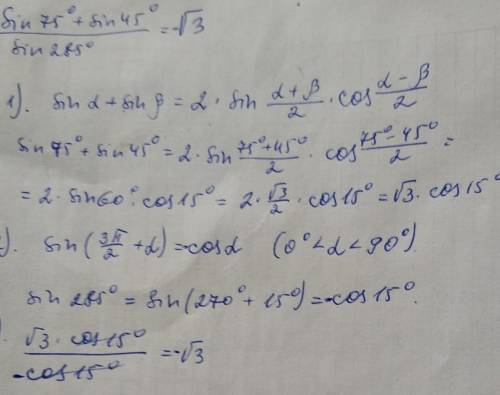 (sin 75° + sin 45°) / sin 285° = -√3
1). sin α + sin β = 2 · sin (α + β)/2 · cos (α - β)/2
sin 75° + sin 45° = 2 · sin (75° + 45°)/2 · cos (75° - 45°)/2 =
= 2 · sin 60° · cos 15° = 2 · √3/2 · cos 15° = √3 · cos 15°
). sin (3π/2 + α) = -cos α (0° < α < 90°).
sin 285° = sin (270° + 15°) = -cos 15°.
) (√3 · cos 15°) / (-cos 15°) = -√3